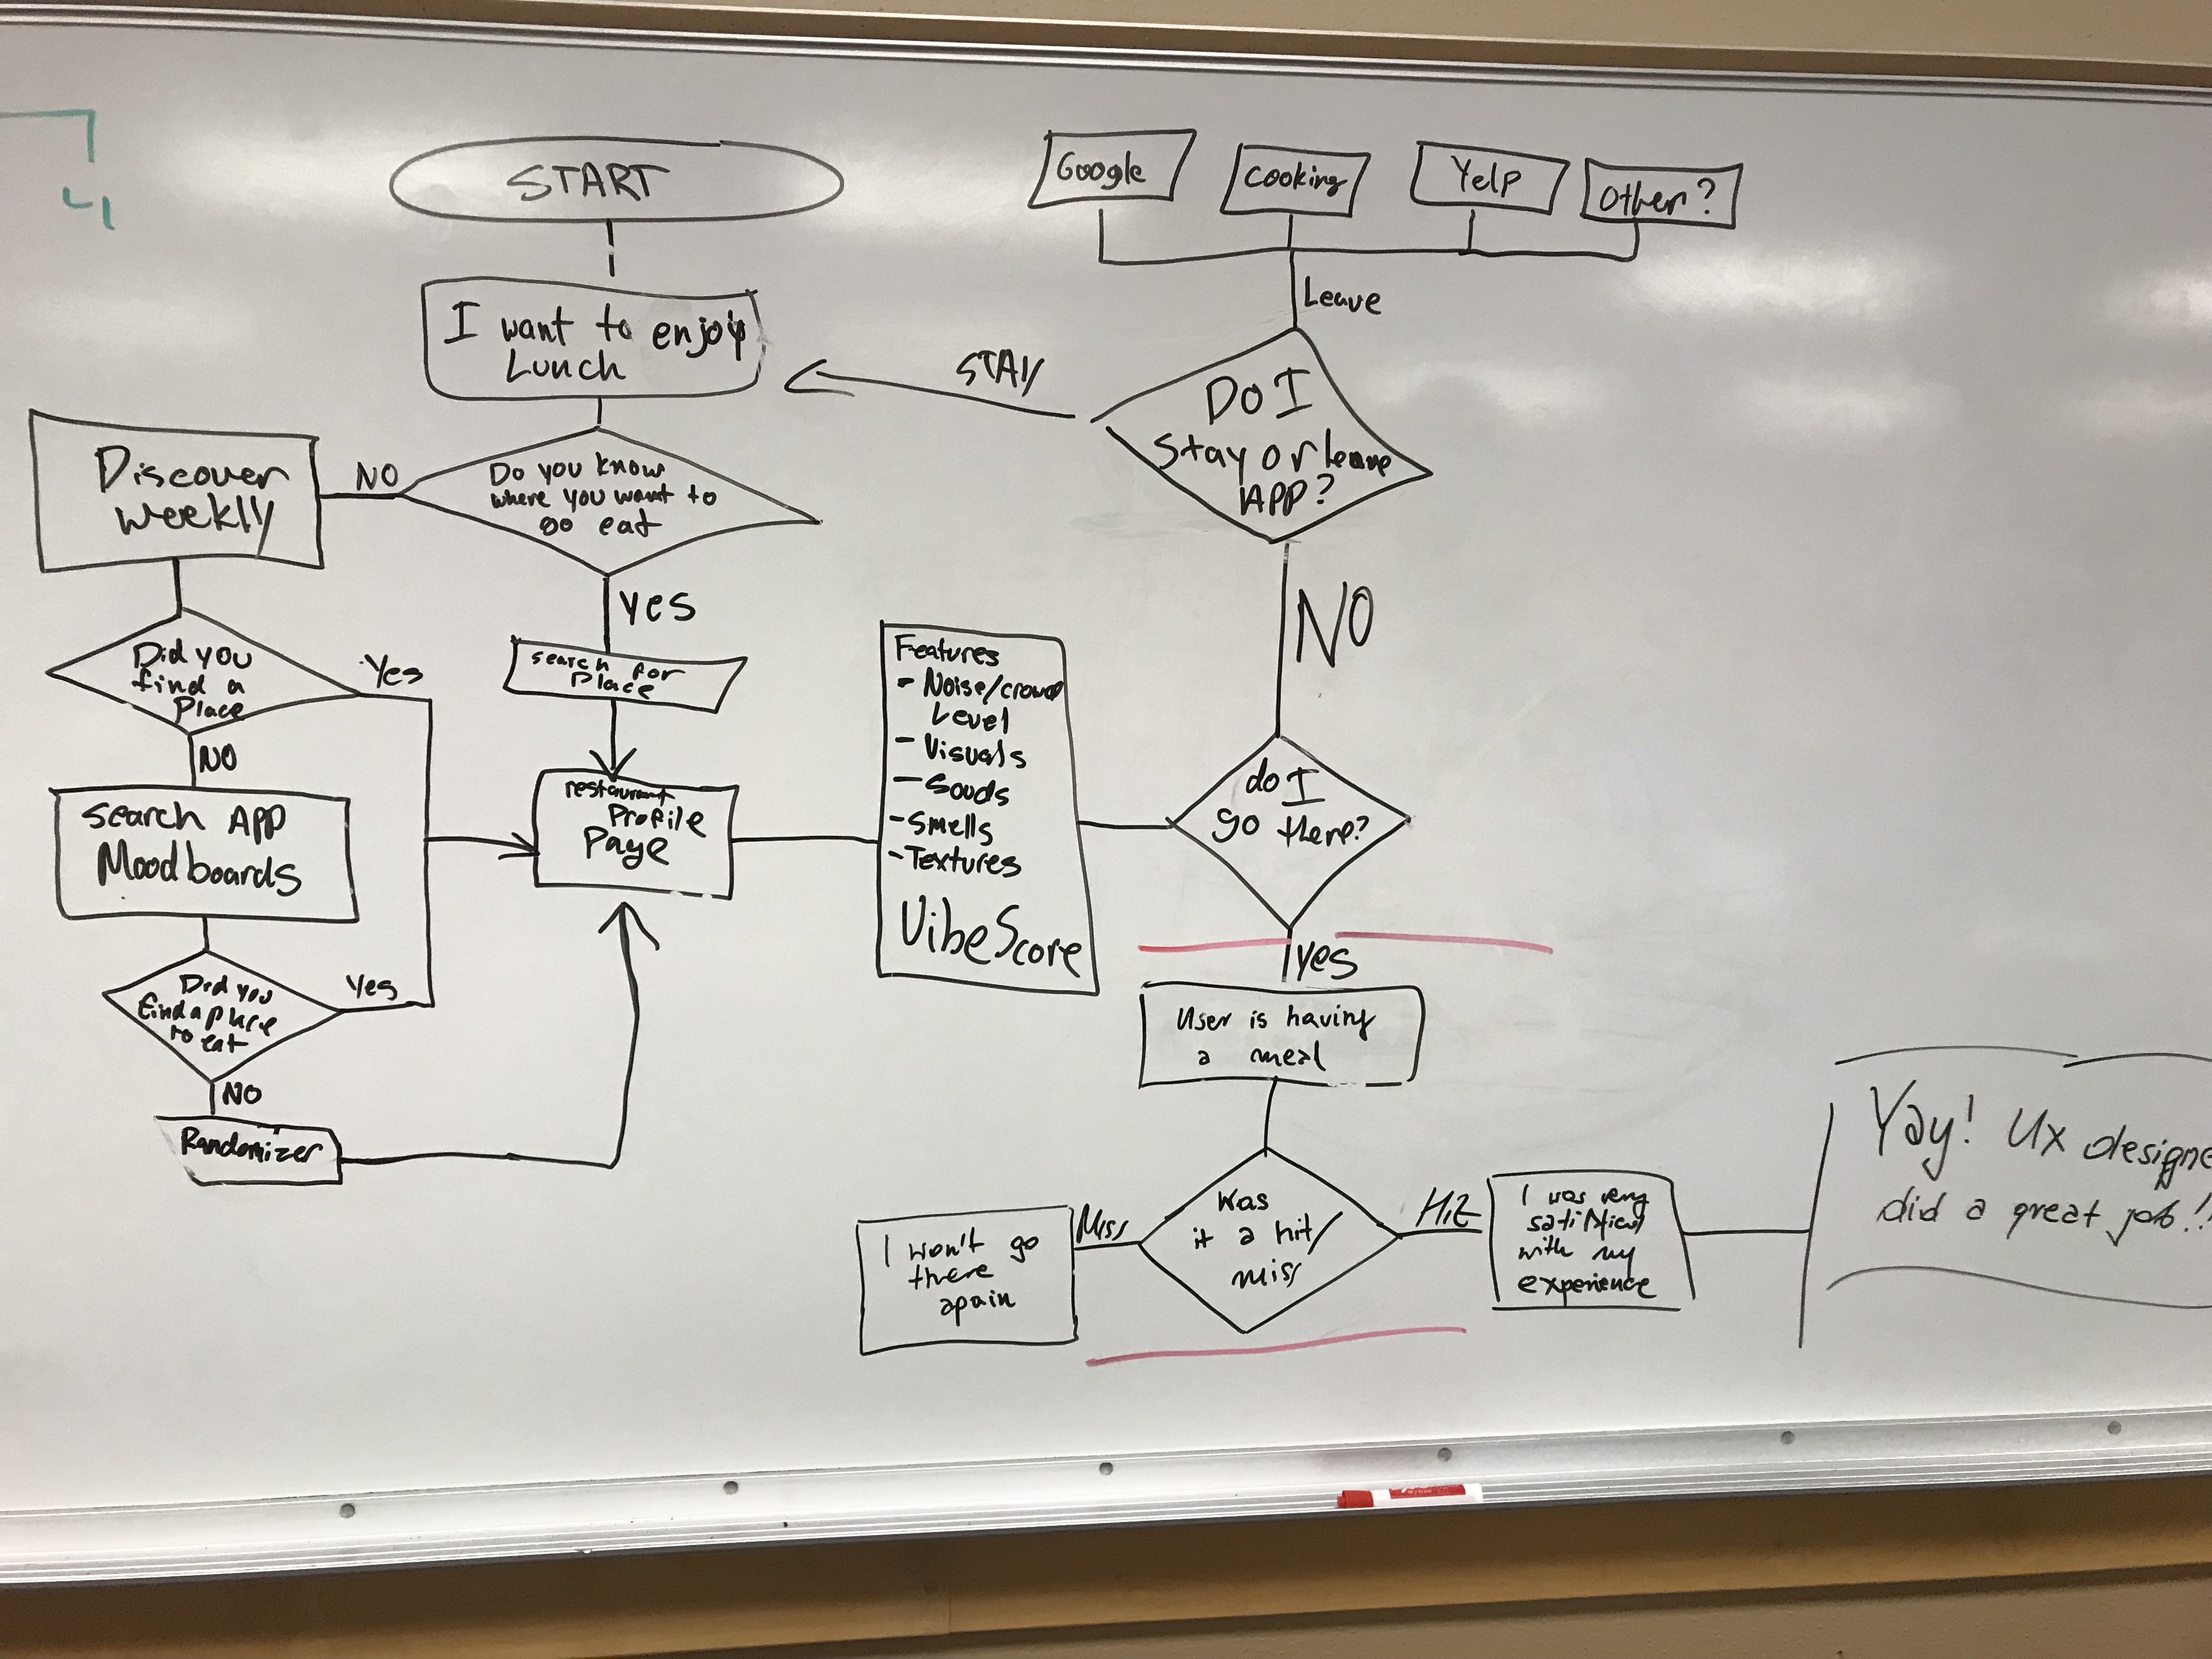 START
I want to enjoy
Lunch
Do you know
where you want to
go eat
NO
Discover
weekly
Did you
find a
Place
Yes
NO
search APP
Moodboards
Did you
find a place
to eat
Yes
NO
Randomizer
YES
search for
Place
restaurant
Profile
Page
Features
- Noise/crowd
Level
- Visuals
- Souds
- Smells
- Textures
VibeScore
do I
go there?
NO
Do I
stay or leave
APP?
STAY
Leave
Google
cooking
Yelp
Other?
yes
User is having
a meal
was
it a hit/
miss
Miss
I won't go
there
again
Hit
I was very
satisfied
with my
experience
Yay! Ux designe
did a great job!!